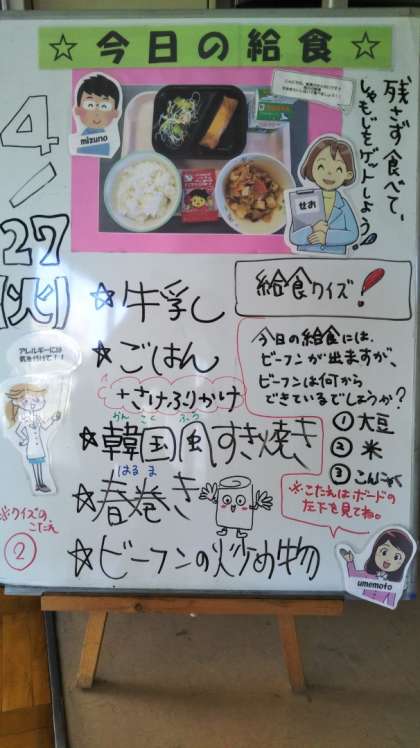 ☆今日の給食☆
残さず食べて、
しゃもじをゲットしよう!!
mizuno
せお
4/27(火)
☆牛乳
☆ごはん
+さけふりかけ
かんこくふう
☆韓国風すき焼き
はるま
☆春巻き
☆ビーフンの炒め物
給食クイズ!
今日の給食には、
ビーフンが出ますが、
ビーフンは何から
できているでしょうか?
①大豆
②米
③こんにゃく
※こたえはボードの
左下を見てね。
アレルギーには
気を付けて!!
※クイズの
こたえ
②
umemoto